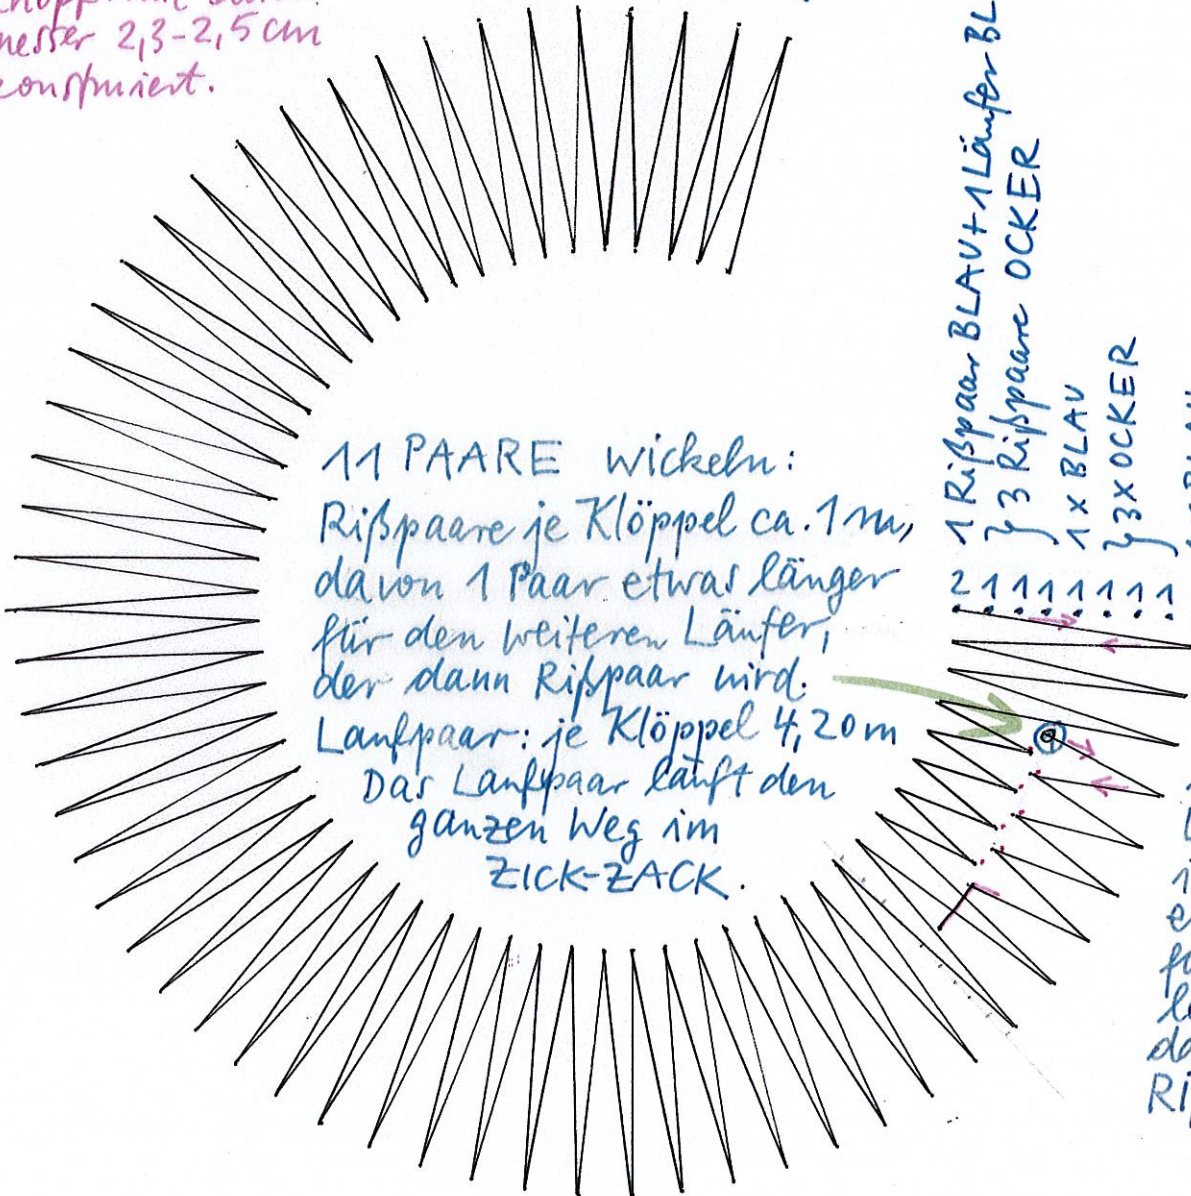 messer 2,3-2,5 cm
konstruiert.
11 PAARE wickeln:
Rißpaare je Klöppel ca. 1 m,
davon 1 Paar etwas länger
für den weiteren Läufer,
der dann Rißpaar wird.
Laufpaar: je Klöppel 4,20 m
Das Laufpaar läuft den
ganzen Weg im
ZICK-ZACK.
1 Rißpaar BLAU + 1 Läufer BL
} 3 Rißpaare OCKER
1 x BLAU
} 3 x OCKER
2 1 1 1 1 1 1 1
Ri